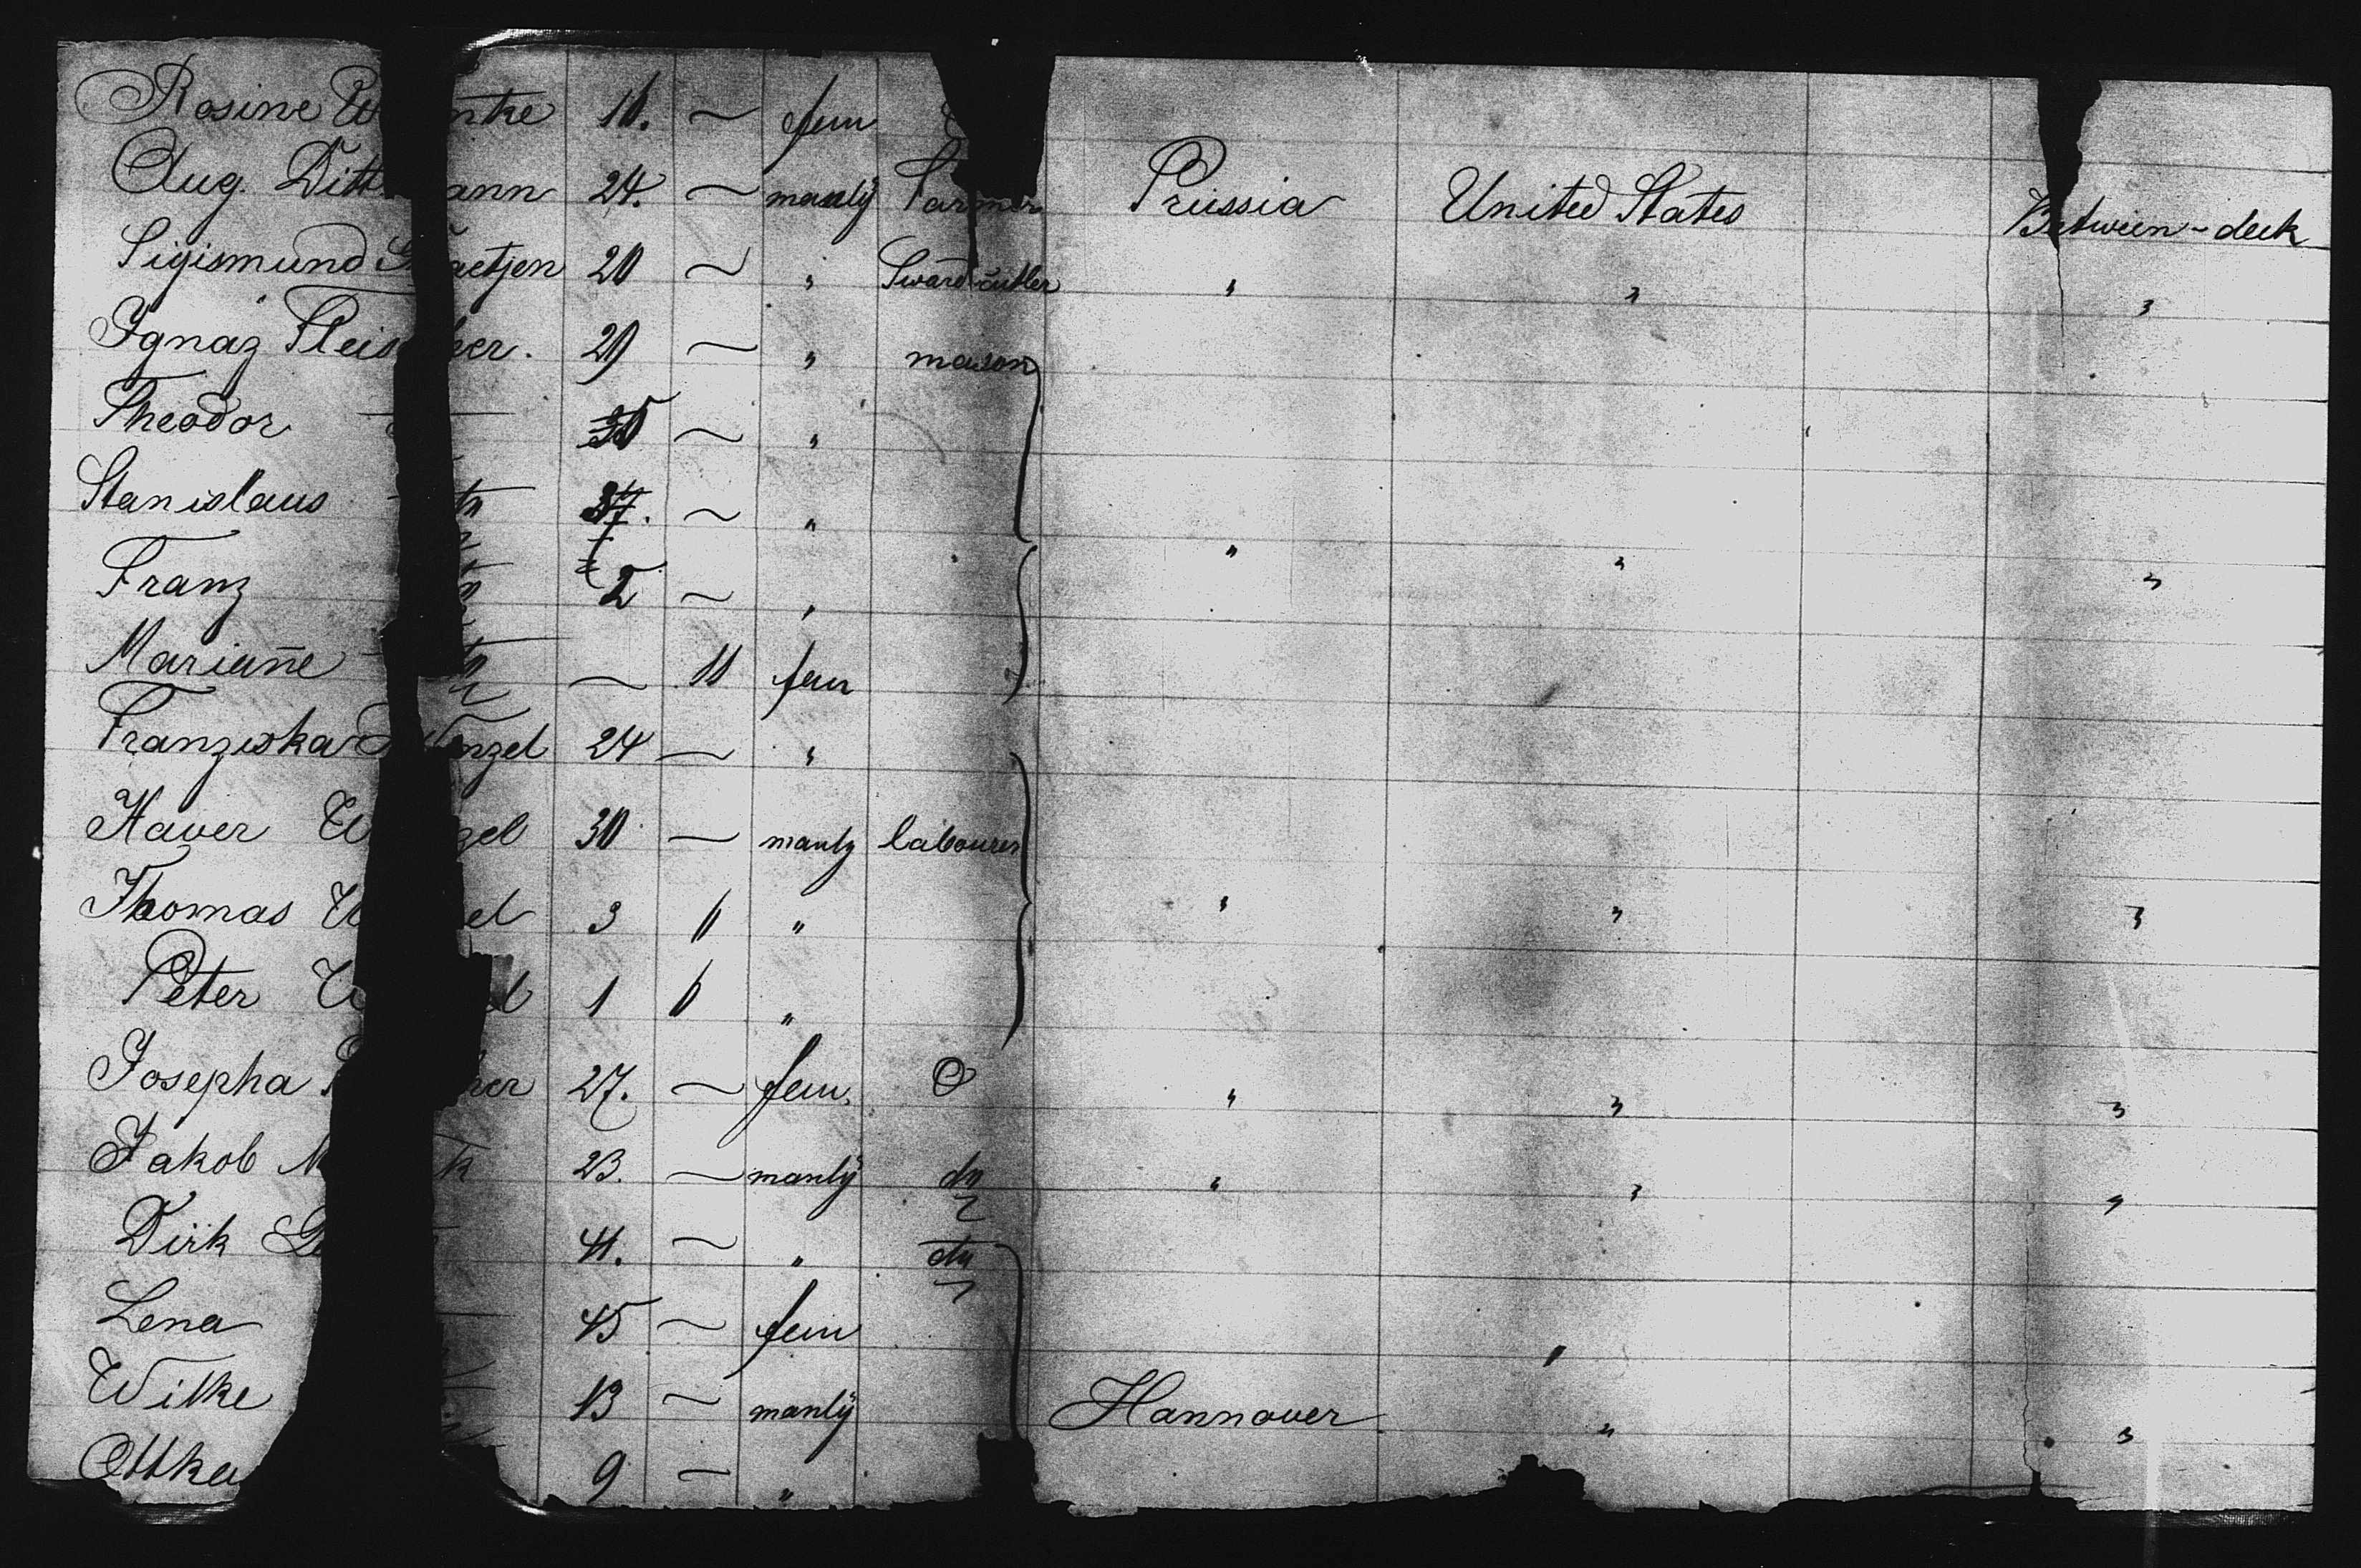 Rosine W ntke 16. ~ fem
Aug. Ditt ann 24. ~ manly Farmer Prussia United States Between-deck
Sigismund aetjen 20 ~ " Sward-cutler " " "
Ignaz Fleis her. 29 ~ " mason
Theodor — ~ "
Stanislaus ~ "
Franz 2 ~ " " " "
Mariane — 11 fem
Franziska enzel 24 — "
Xaver W zel 30 — manly labourer
Thomas W el 3 6 " " " "
Peter W el 1 6 "
Josepha her 27. ~ fem. O " " "
Jakob M k 23. ~ manly do " " "
Dirk 41. ~ " do
Lena 45 ~ fem "
Wilke 13 ~ manly Hannover " "
Ottka 9 ~ "